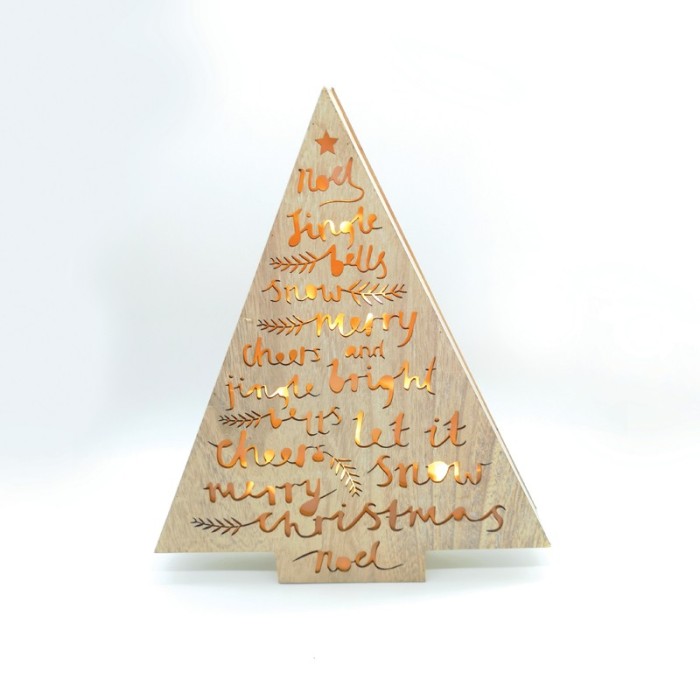 noel
Jingle
bells
snow
merry
cheers and
jingle bright
bells let it
cheers snow
merry
christmas
noel